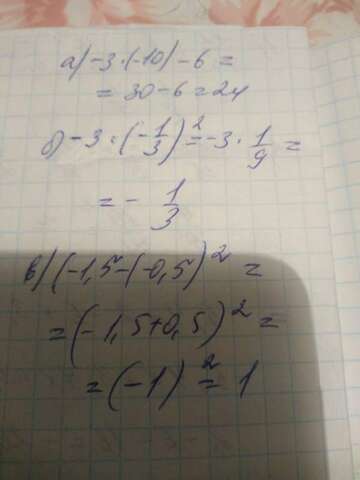 а) -3 · (-10) - 6 =
= 30 - 6 = 24
б) -3 · (-1/3)² = -3 · 1/9 =
= - 1/3
в) (-1,5 - (-0,5)² =
= (-1,5 + 0,5)² =
= (-1)² = 1